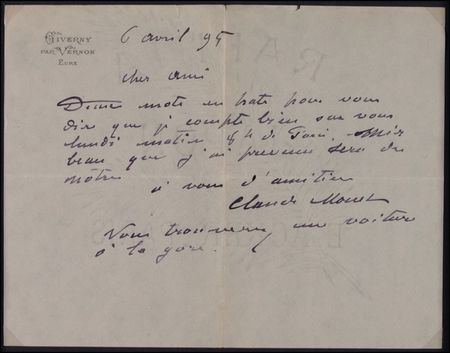 GIVERNY
PAR VERNON
EURE
6 avril 95
cher ami
Deux mots en hate pour vous
dire que j compte bien sur vous
lundi matin de Paris. Mir
beau que j'ai prevenu sera des
nôtres
à vous d'amitié
Claude Monet
Vous trouverez une voiture
à la gare.